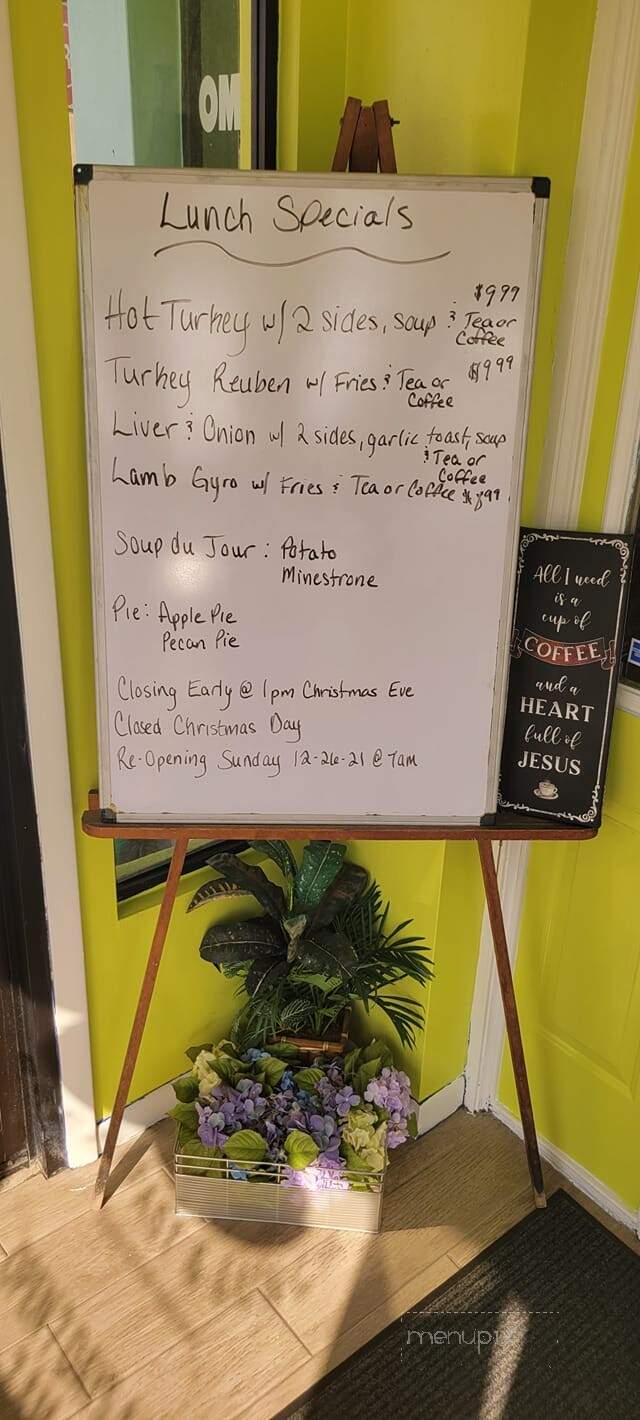 OM
Lunch Specials
$9.99
Hot Turkey w/ 2 sides, soup & Tea or
Coffee
Turkey Reuben w/ Fries & Tea or $9.99
Coffee
Liver & Onion w/ 2 sides, garlic toast, soup
& Tea or
Coffee
Lamb Gyro w/ Fries & Tea or Coffee
Soup du Jour: Potato
Minestrone
Pie: Apple Pie
Pecan Pie
Closing Early @ 1pm Christmas Eve
Closed Christmas Day
Re-Opening Sunday 12-26-21 @ 7am
All I need
is a
cup of
COFFEE
and a
HEART
full of
JESUS
menupix